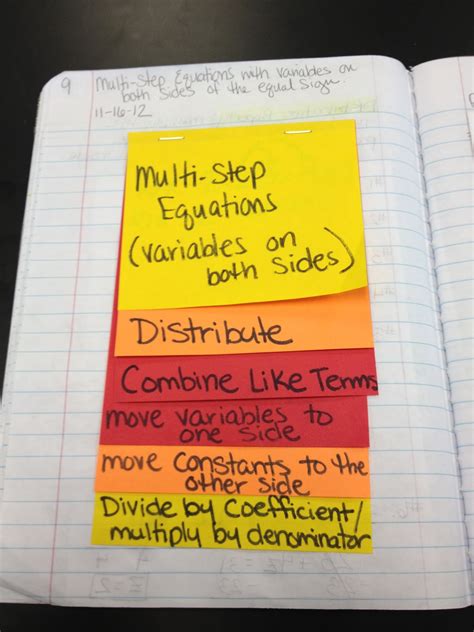 9 Multi-Step Equations with variables on
both sides of the equal sign.
11-16-12
Multi-Step
Equations
(variables on
both sides)
Distribute
Combine Like Terms
move variables to
one side
move constants to the
other side
Divide by coefficient/
multiply by denominator